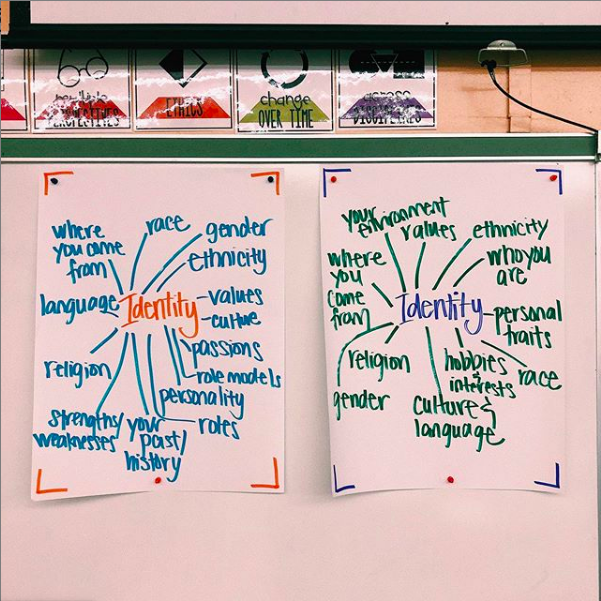 multiple
PERSPECTIVES
ETHICS
change
OVER TIME
across
DISCIPLINES
where
you come
from
race
gender
ethnicity
language
Identity
values
culture
passions
role models
religion
personality
strengths/
weaknesses
your
past/
history
roles
your
environment
values
ethnicity
where
you
come
from
who you
are
Identity
personal
traits
religion
hobbies
&
interests
race
gender
culture &
language